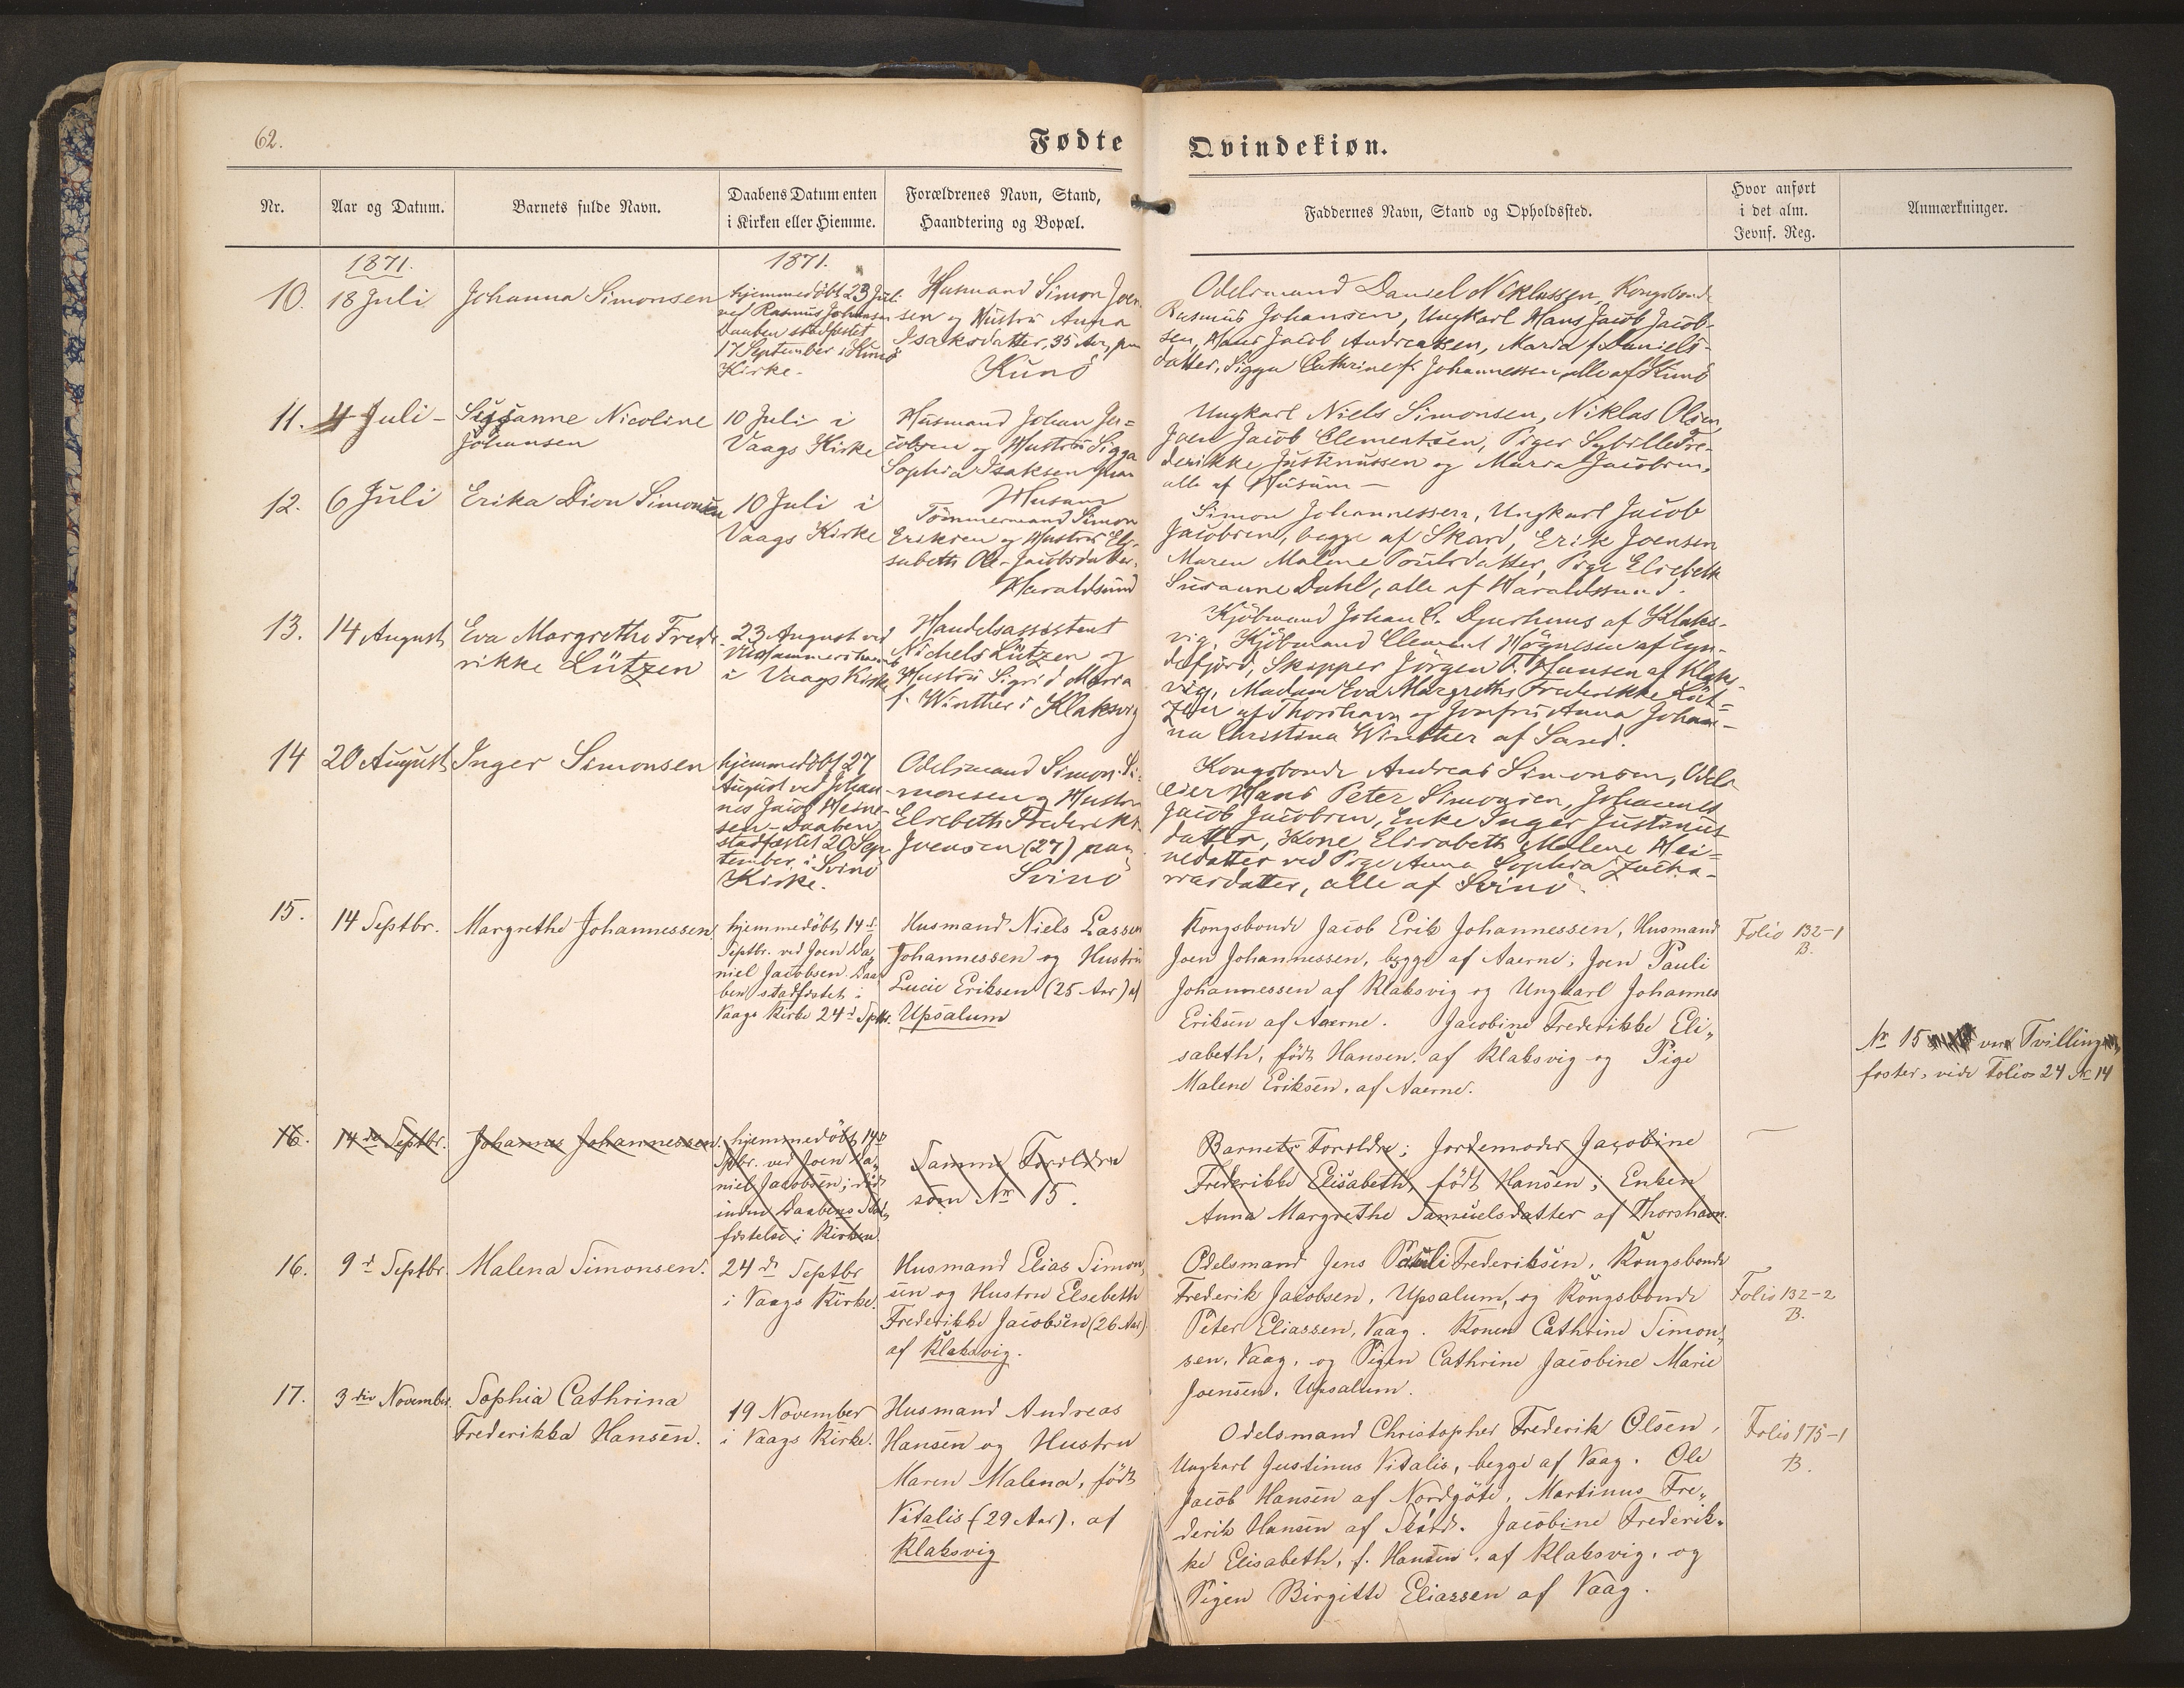 62.
Fødte Qvindekiøn.
Nr.
Aar og Datum.
Barnets fulde Navn.
Daabens Datum enten
i Kirken eller Hiemme.
Forældrenes Navn, Stand,
Haandtering og Bopæl.
Faddernes Navn, Stand og Opholdssted.
Hvor anført
i det alm.
Jevnf. Reg.
Anmærkninger.
1871.
1871.
10.
18 Juli
Johanna Simonsen
hjemmedöbt 23 Juli
ved Rasmus Johansen
Daaben stadfæstet
17 September i Kunö
Kirke.
Husmand Simon Joen-
sen og Hustru Anna
Isaksdatter, 35 Aar, paa
Kunö
Odelsmand Daniel Niklassen, Kongsbonde
Rasmus Johansen, Ungkarl Hans Jacob Jacob-
sen, Hans Jacob Andreassen, Maria f. Daniels-
datter, Sigga Cathrine f. Johannessen, alle af Kunö
11.
4 Juli -
Susanne Nicoline
Johansen
10 Juli i
Vaags Kirke
Husmand Johan Ja=
cobsen og Hustru Sigga
Sophia Isaksen paa
Husum
Ungkarl Niels Simonsen, Niklas Olsen,
Joen Jacob Clementsen, Piger Sybille Fre-
derikke Justinussen og Maria Jacobsen,
alle af Husum -
12.
6 Juli
Erika Dion Simonsen
10 Juli i
Vaags Kirke
Tömmermand Simon
Eriksen og Hustru Eli-
sabeth Ole-Jacobsdatter,
Haraldsund
Simon Johannessen, Ungkarl Jacob
Jacobsen, begge af Skard, Erik Joensen
Maren Malene Poulsdatter, Pige Elsebeth
Susanne Dahl, alle af Haraldssund.
13.
14 August
Eva Margrethe Frede-
rikke Lützen
23 August ved
i Vaags Kirke
Handelsassistent
Nichels Lützen og
Hustru Sigrid Maria
f. Winther i Klaksvig
Kjöbmand Johan C. Djurhuus af Klaks-
vig, Kjöbmand Clement Högnesen af Fun-
defjord, Skipper Jörgen F. Hansen af Klaks-
vig, Madam Eva Margrethe Frederikke Lüt=
zen af Thorshavn og Jomfru Anna Johan-
na Christina Winther af Sand.
14
20 August
Inger Simonsen
hjemmedöbt 27
August ved Johan-
nes Jacob Heine-
sen - Daaben
stadfæstet 20 Sep-
tember i Svinö
Kirke.
Odelsmand Simon Si-
monsen og Hustru
Elsebeth Frederikke
Joensen (27) paa
Svinö
Kongsbonde Andreas Simonsen, Odels-
eier Hans Peter Simonsen, Johannes
Jacob Jacobsen, Enke Inger Justinus-
datter, Kone Elisabeth Malene Hei=
nedatter ved Pige Anna Sophia Zacha-
riasdatter, alle af Svinö.
15.
14 Septbr.
Margrethe Johannessen.
hjemmedöbt 14d
Septbr. ved Joen Da„
niel Jacobsen. Daa„
ben stadfæstet i
Vaags Kirke 24d Septbr.
Husmand Niels Lassen
Johannessen og Hustru
Lucie Eriksen (25 Aar) af
Upsalum
Kongsbonde Jacob Erik Johannessen, Husmand
Joen Johannessen, begge af Aaerne; Joen Pauli
Johannessen af Klaksvig og Ungkarl Johannes
Eriksen af Aaerne. Jacobine Frederikke Eli„
sabeth, födt Hansen, af Klaksvig og Pige
Malene Eriksen, af Aaerne.
Folio 132-1
B.
No 15 var Tvilling,
foster, vide Folio 24 No 14
16.
14de Septbr.
Johannes Johannessen.
hjemmedöbt 14d
Sptbr. ved Joen Da„
niel Jacobsen; död
inden Daabens Stad„
fæstelse i Kirken.
Samme Forældre
som No 15.
Barnets Forældre; Jordemoder Jacobine
Frederikke Elisabeth, födt Hansen; Enken
Anna Margrethe Samuelsdatter af Thorshavn.
16.
9d Septbr.
Malena Simonsen.
24de Septbr
i Vaags Kirke.
Husmand Elias Simon„
sen og Hustru Elsebeth
Frederikke Jacobsen (26 Aar)
af Klaksvig.
Odelsmand Jens Pauli Frederiksen, Kongsbonde
Frederik Jacobsen, Upsalum, og Kongsbonde
Peter Eliassen, Vaag. Konen Cathrine Simon„
sen, Vaag, og Pigen Cathrine Jacobine Marie
Joensen, Upsalum.
Folio 132-2
B.
17.
3die November.
Sophia Cathrina
Frederikka Hansen.
19 November
i Vaags Kirke.
Husmand Andreas
Hansen og Hustru
Maren Malena, födt
Vitalis (29 Aar), af
Klaksvig
Odelsmand Christopher Frederik Olsen,
Ungkarl Justinus Vitalis, begge af Vaag. Ole
Jacob Hansen af Nordgöte, Martinus Fre„
derik Hansen af Skard. Jacobine Frederik„
ke Elisabeth, f. Hansen, af Klaksvig, og
Pigen Birgitte Eliassen af Vaag.
Folio 175-1
B.